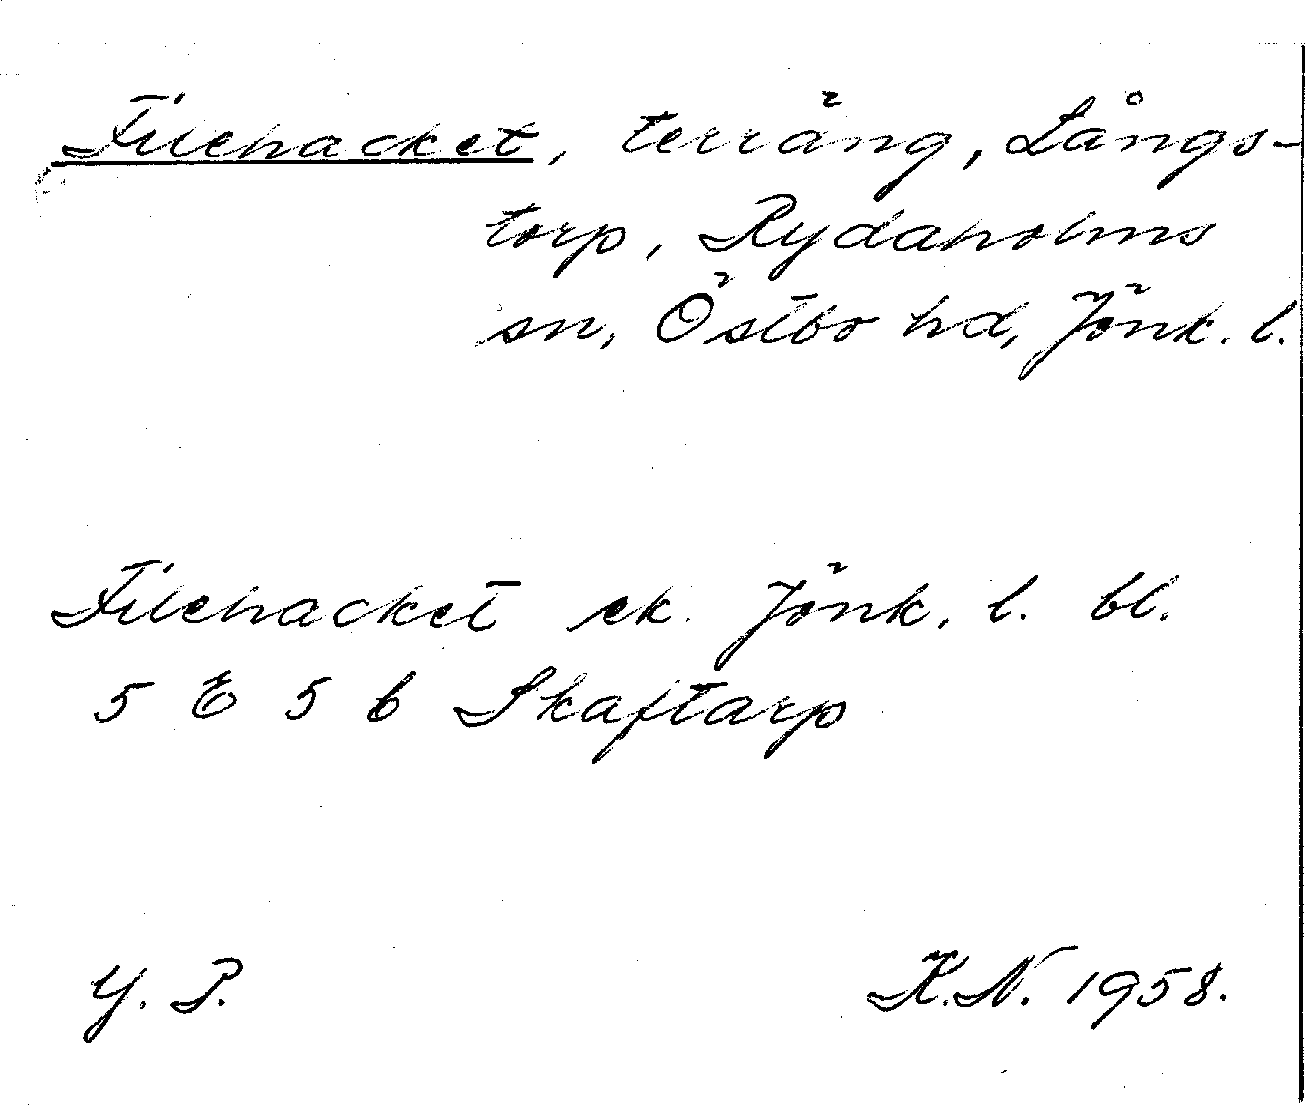 Filehacket, terräng, Långs-
torp, Rydaholms
sn, Östbo hd, Jönk. l.
Filehacket ek. Jönk. l. bl.
5 E 5 b Skaftarp
Y. P.
K.N. 1958.